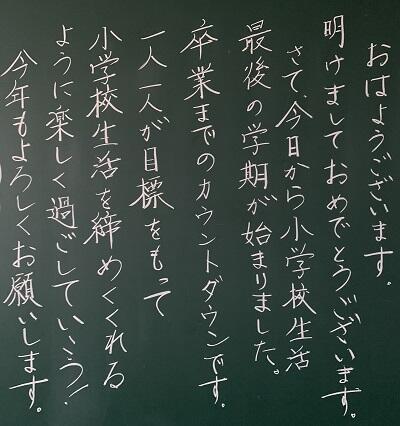 おはようございます。
明けましておめでとうございます。
さて、今日から小学校生活
最後の学期が始まりました。
卒業までのカウントダウンです。
一人一人が目標をもって
小学校生活を締めくくれる
ように楽しく過ごしていこう!
今年もよろしくお願いします。